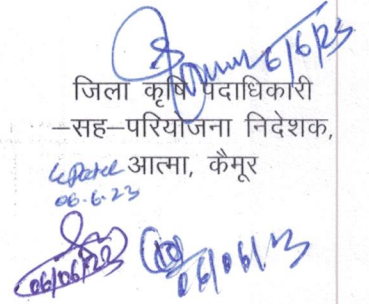 6/6/23
जिला कृषि पदाधिकारी
–सह–परियोजना निदेशक,
आत्मा, कैमूर
06.6.23
06/06/23
06/06/23